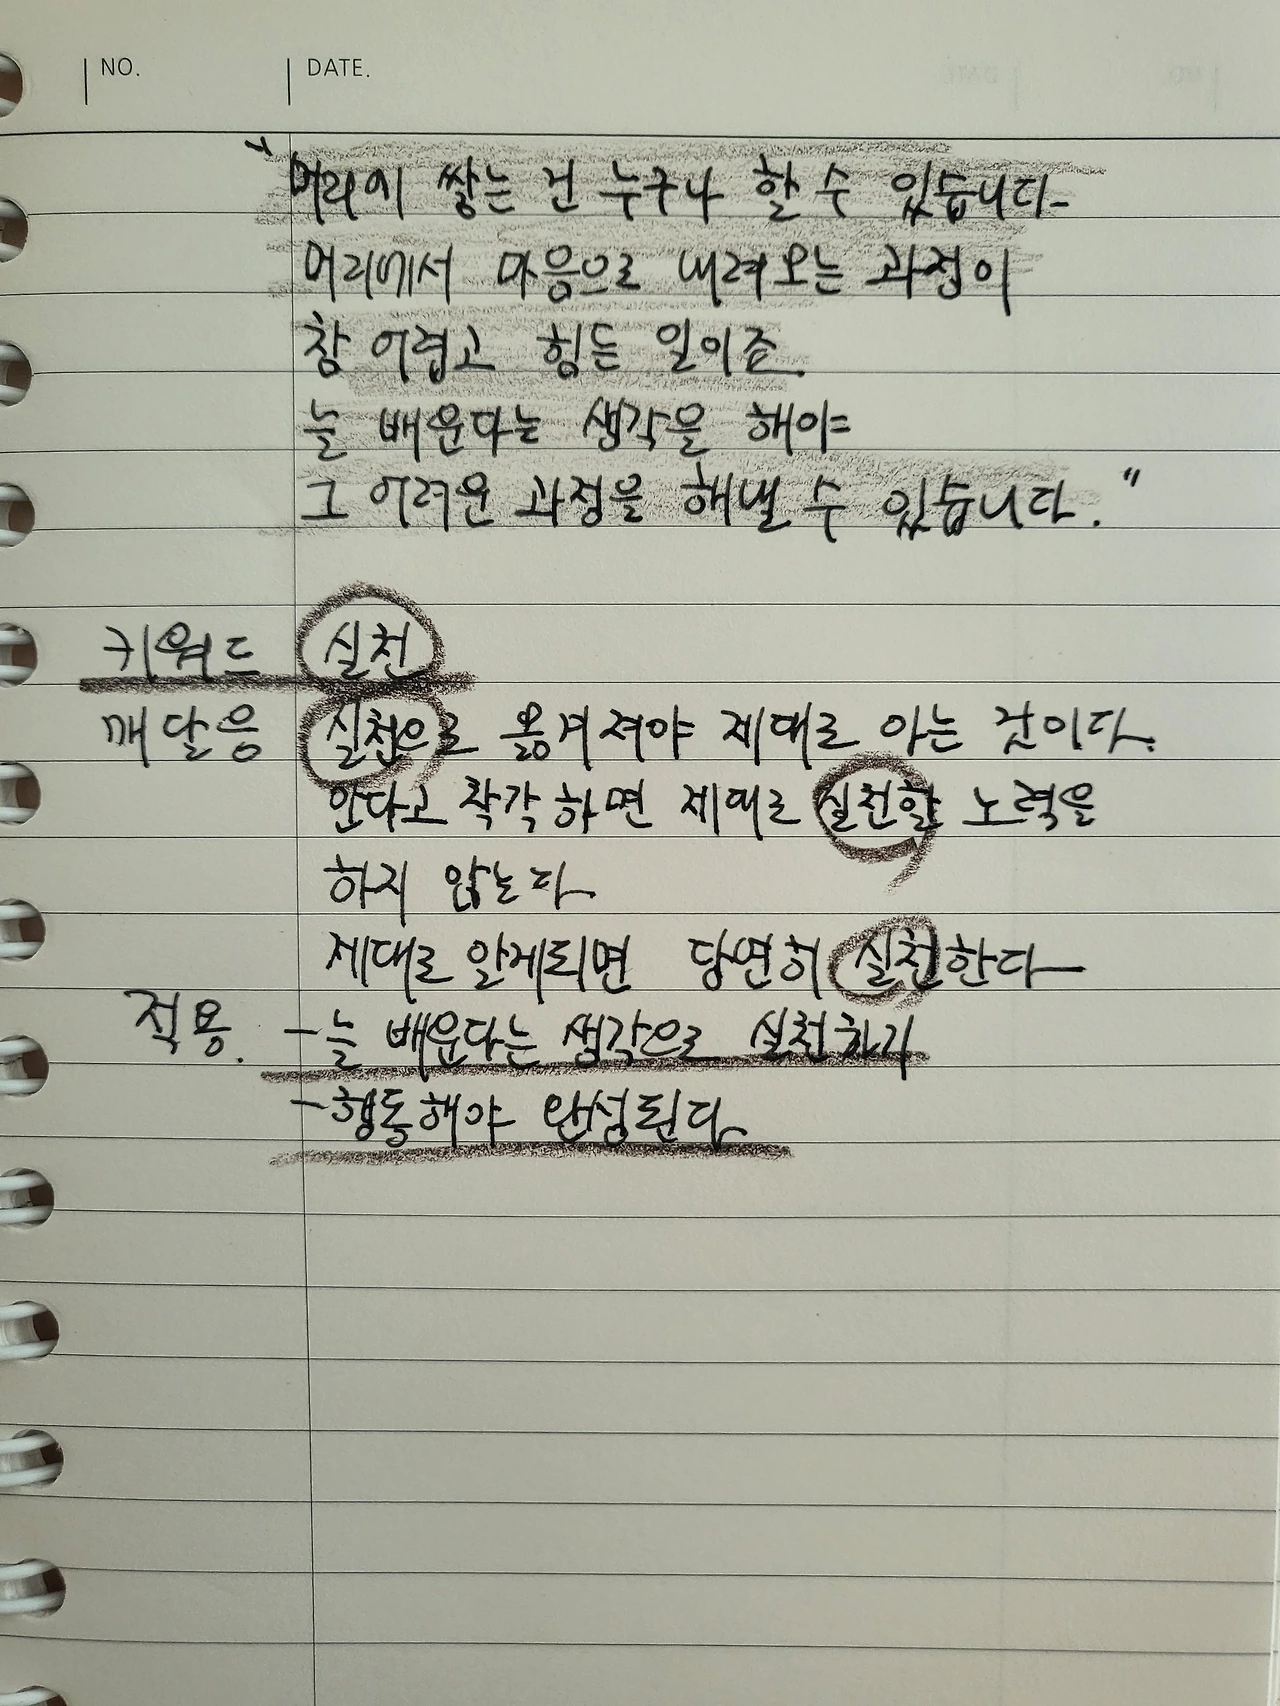 NO. DATE.
"머리에 쌓는 건 누구나 할 수 있습니다.
머리에서 마음으로 내려오는 과정이
참 어렵고 힘든 일이죠.
늘 배운다는 생각을 해야
그 어려운 과정을 해낼 수 있습니다."
키워드 실천
깨달음 실천으로 옮겨져야 제대로 아는 것이다.
안다고 착각하면 제대로 실천할 노력을
하지 않는다.
제대로 알게되면 당연히 실천한다
적용. - 늘 배운다는 생각으로 실천하기
- 행동해야 완성된다.